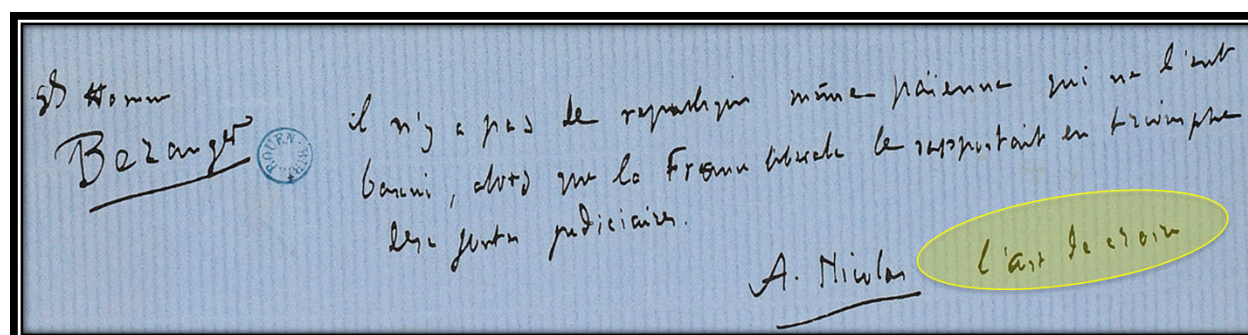 gds Hommes
Beranger
ROUEN
il n'y a pas de republique même païenne qui ne l'eut
banni, alors que la France liberale le rapportait en triomphe
joutes judiciaires.
A. Nicolas l'art de croire